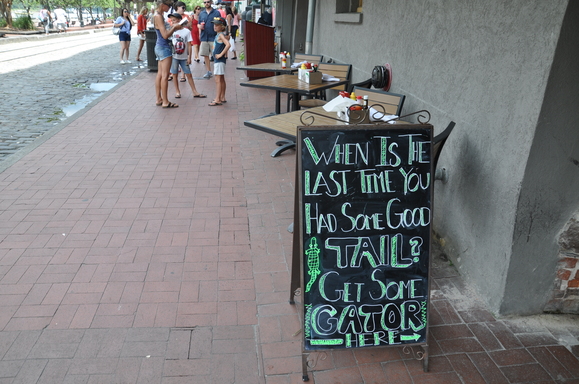 WHEN IS THE
LAST TIME YOU
HAD SOME GOOD
TAIL?
GET SOME
GATOR
HERE